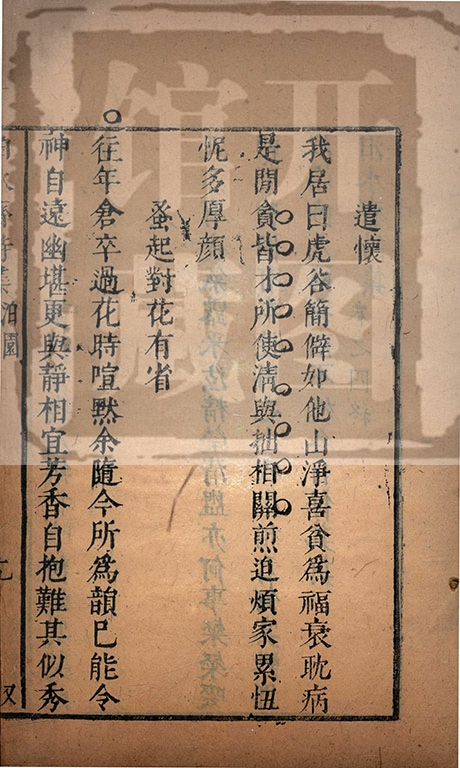 遣懷
我居曰虎谷簡僻如他山淨喜貧為福衰耽病
是閒貧皆才所使清與拙相關煎迫煩家累忸
怩多厚顏
蚤起對花有省
往年倉卒過花時喧默余隨今所為韻已能令
神自遠幽堪更與靜相宜芳香自抱難其似秀
泊園